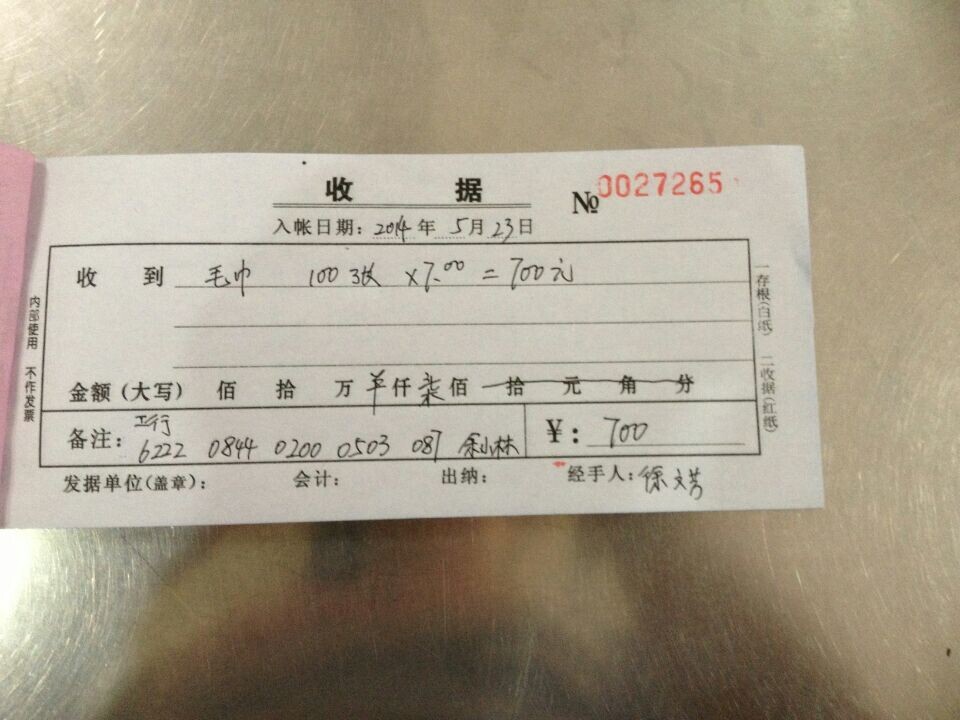 收 据 № 0027265
入帐日期：2014年5月23日
收 到 毛巾 100张 ×7.00 = 700元
金额（大写） 佰 拾 万 仟 柒 佰 拾 元 角 分
备注： 工行
6222 0844 0200 0503 087 余小林 ￥：700
发据单位（盖章）： 会计： 出纳： 经手人：徐文芳
内部使用 不作发票
一存根（白纸） 二收据（红纸）